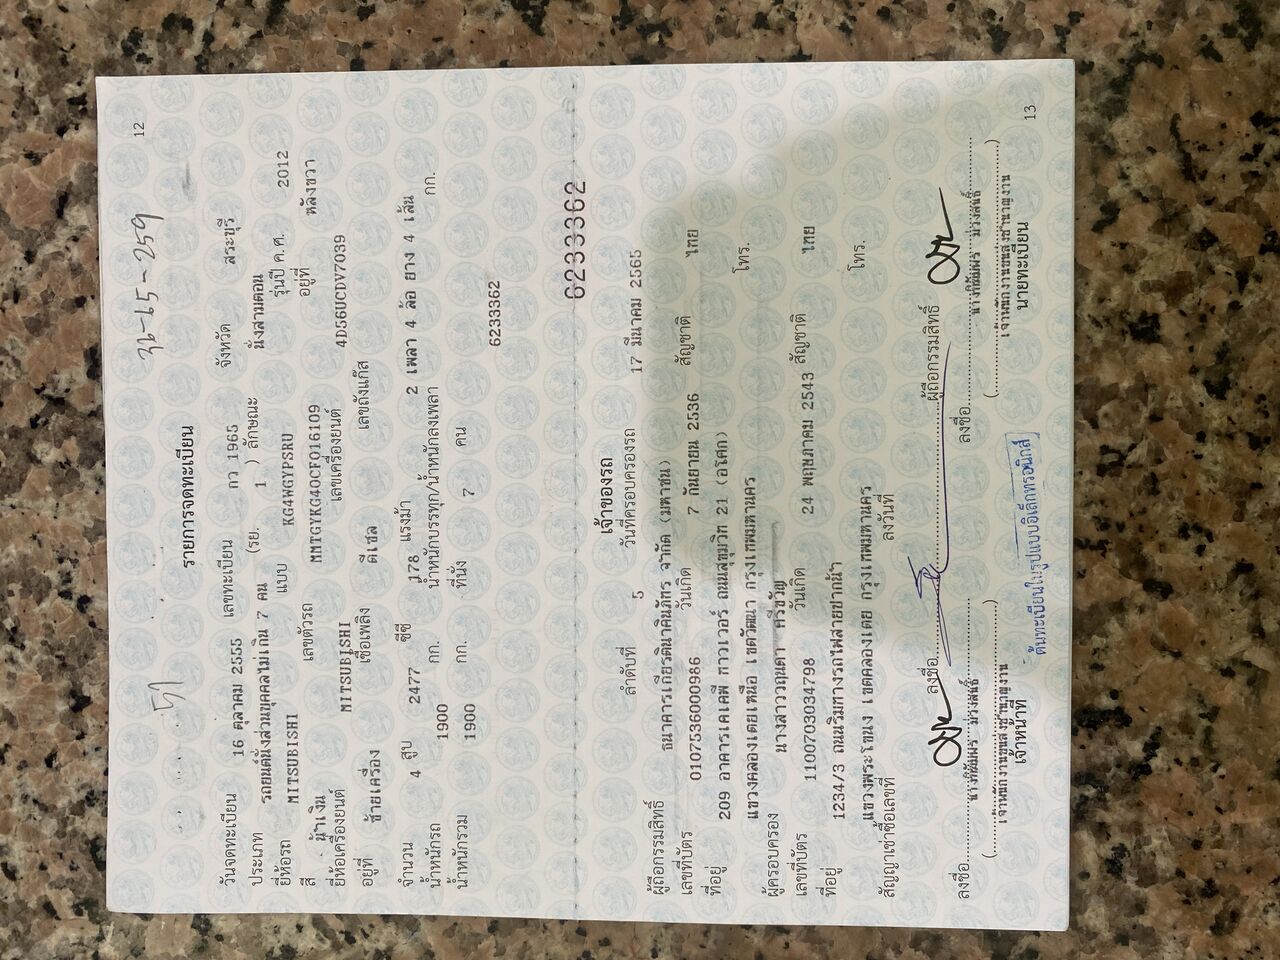 12
36-15-259
รายการจดทะเบียน
วันจดทะเบียน 16 ตุลาคม 2555 เลขทะเบียน กว 1965 จังหวัด สระบุรี
ประเภท รถยนต์นั่งส่วนบุคคลไม่เกิน 7 คน (รย. 1 ) ลักษณะ นั่งสามตอน
ยี่ห้อรถ MITSUBISHI แบบ KG4WGYPSRU รุ่นปี ค.ศ. 2012
สี น้ำเงิน เลขตัวรถ MMTGYKG40CF016109 อยู่ที่ หลังขวา
ยี่ห้อเครื่องยนต์ MITSUBISHI เลขเครื่องยนต์ 4D56UCDV7039
อยู่ที่ ซ้ายเครื่อง เชื้อเพลิง ดีเซล เลขถังแก๊ส
จำนวน 4 สูบ 2477 ซีซี 178 แรงม้า 2 เพลา 4 ล้อ ยาง 4 เส้น
น้ำหนักรถ 1900 กก. น้ำหนักบรรทุก/น้ำหนักลงเพลา กก.
น้ำหนักรวม 1900 กก. ที่นั่ง 7 คน
6233362
6233362
เจ้าของรถ
ลำดับที่ 5 วันที่ครอบครองรถ 17 มีนาคม 2565
ผู้ถือกรรมสิทธิ์ ธนาคารเกียรตินาคินภัทร จำกัด (มหาชน)
เลขที่บัตร 0107536000986 วันเกิด 7 กันยายน 2536 สัญชาติ ไทย
ที่อยู่ 209 อาคารเคเคพี ทาวเวอร์ ถนนสุขุมวิท 21 (อโศก)
แขวงคลองเตยเหนือ เขตวัฒนา กรุงเทพมหานคร โทร.
ผู้ครอบครอง นางสาววฤนดา ศรีขวัญ
เลขที่บัตร 1100703034798 วันเกิด 24 พฤษภาคม 2543 สัญชาติ ไทย
ที่อยู่ 1234/3 ถนนริมทางรถไฟสายปากน้ำ
แขวงพระโขนง เขตคลองเตย กรุงเทพมหานคร โทร.
สัญญาเช่าซื้อเลขที่ ลงวันที่
ลงชื่อ ผู้ถือกรรมสิทธิ์
ลงชื่อ ลงชื่อ
เจ้าพนักงานขนส่งชำนาญงาน เจ้าพนักงานขนส่งชำนาญงาน
เจ้าหน้าที่ นายทะเบียน
ต้นทะเบียนในรูปแบบอิเล็กทรอนิกส์
13